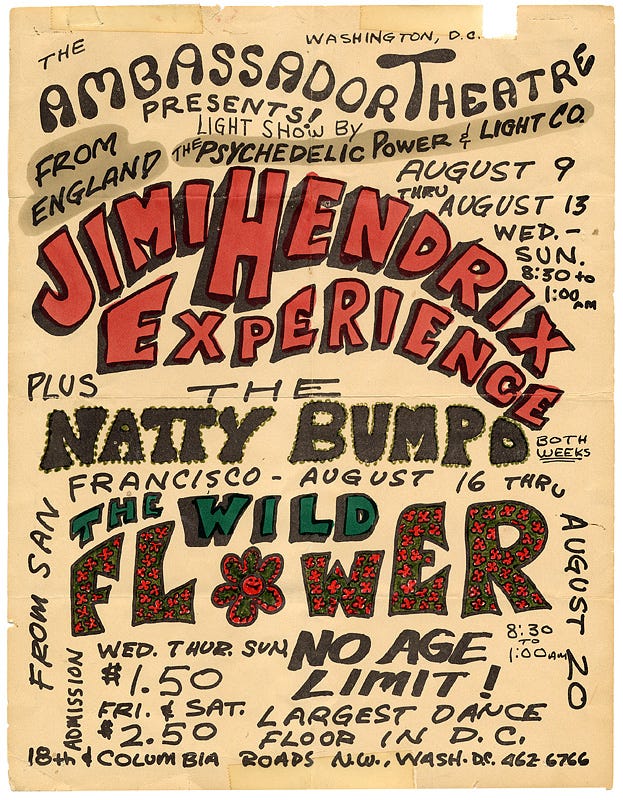 WASHINGTON, D.C.
THE
AMBASSADOR THEATRE
PRESENTS!
LIGHT SHOW BY
THE PSYCHEDELIC POWER & LIGHT CO.
FROM
ENGLAND
AUGUST 9
THRU
AUGUST 13
WED.-
SUN.
8:30 to
1:00 AM
JIMI HENDRIX
EXPERIENCE
PLUS
THE
NATTY BUMPO
BOTH
WEEKS
FROM SAN
FRANCISCO - AUGUST 16 THRU
AUGUST 20
THE WILD
FLOWER
8:30
TO
1:00 AM
ADMISSION
WED. THUR. SUN.
$1.50
FRI. & SAT.
$2.50
NO AGE
LIMIT!
LARGEST DANCE
FLOOR IN D.C.
18th & COLUMBIA ROADS N.W., WASH. DC. 462-6766